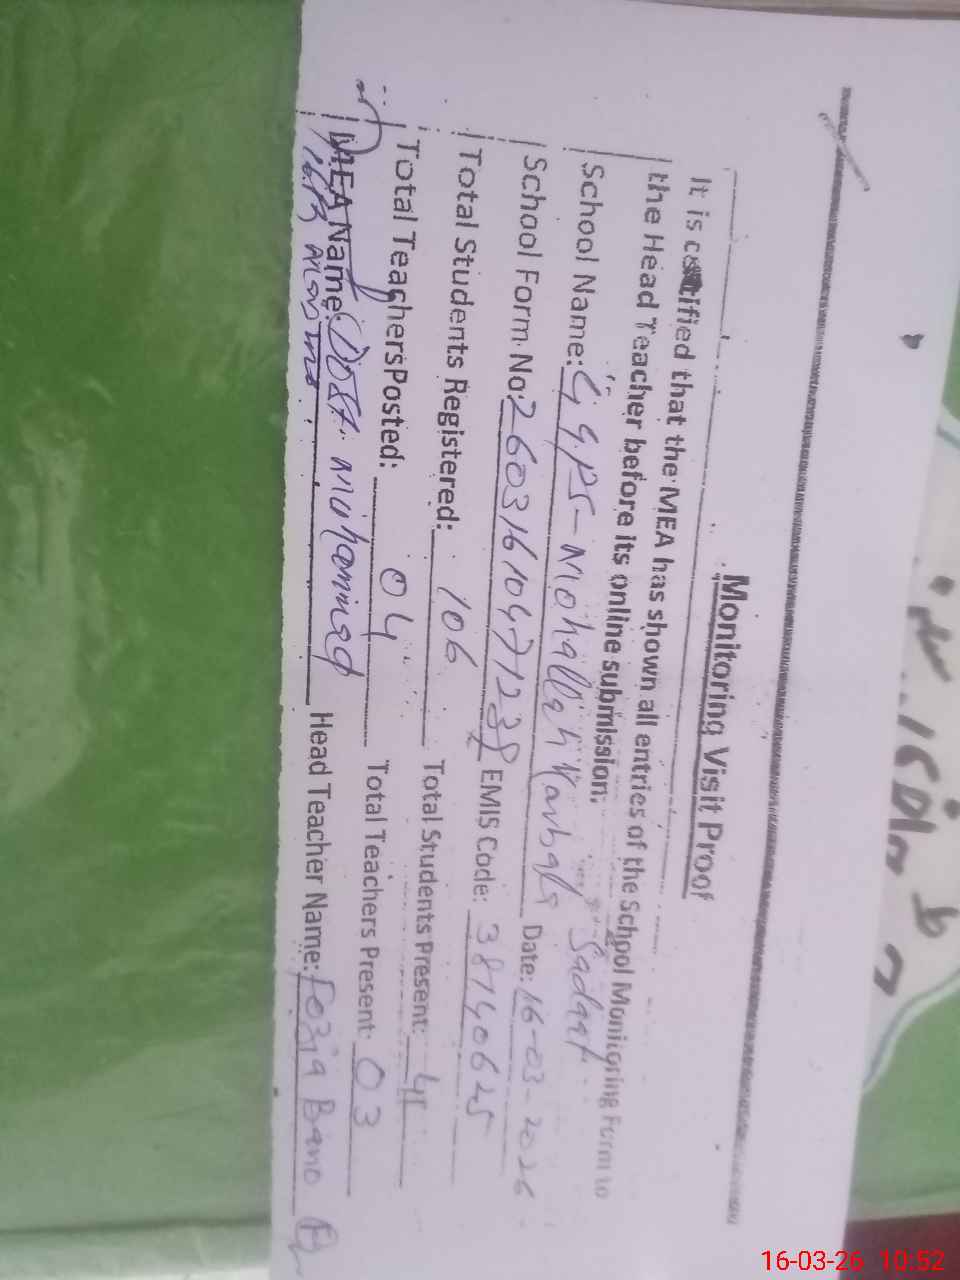 Monitoring Visit Proof
It is certified that the MEA has shown all entries of the School Monitoring Form to
the Head Teacher before its online submission.
School Name: GGPS-Mohallah Karbala Sadaat
School Form No: 26031610471238 Date: 16-03-2026
Total Students Registered: 106 EMIS Code: 38140625
Total Teachers Posted: 04 Total Students Present: 41
MEA Name: Dost Muhammad Total Teachers Present: 03
Head Teacher Name: Fozia Bano
16-03-26 10:52